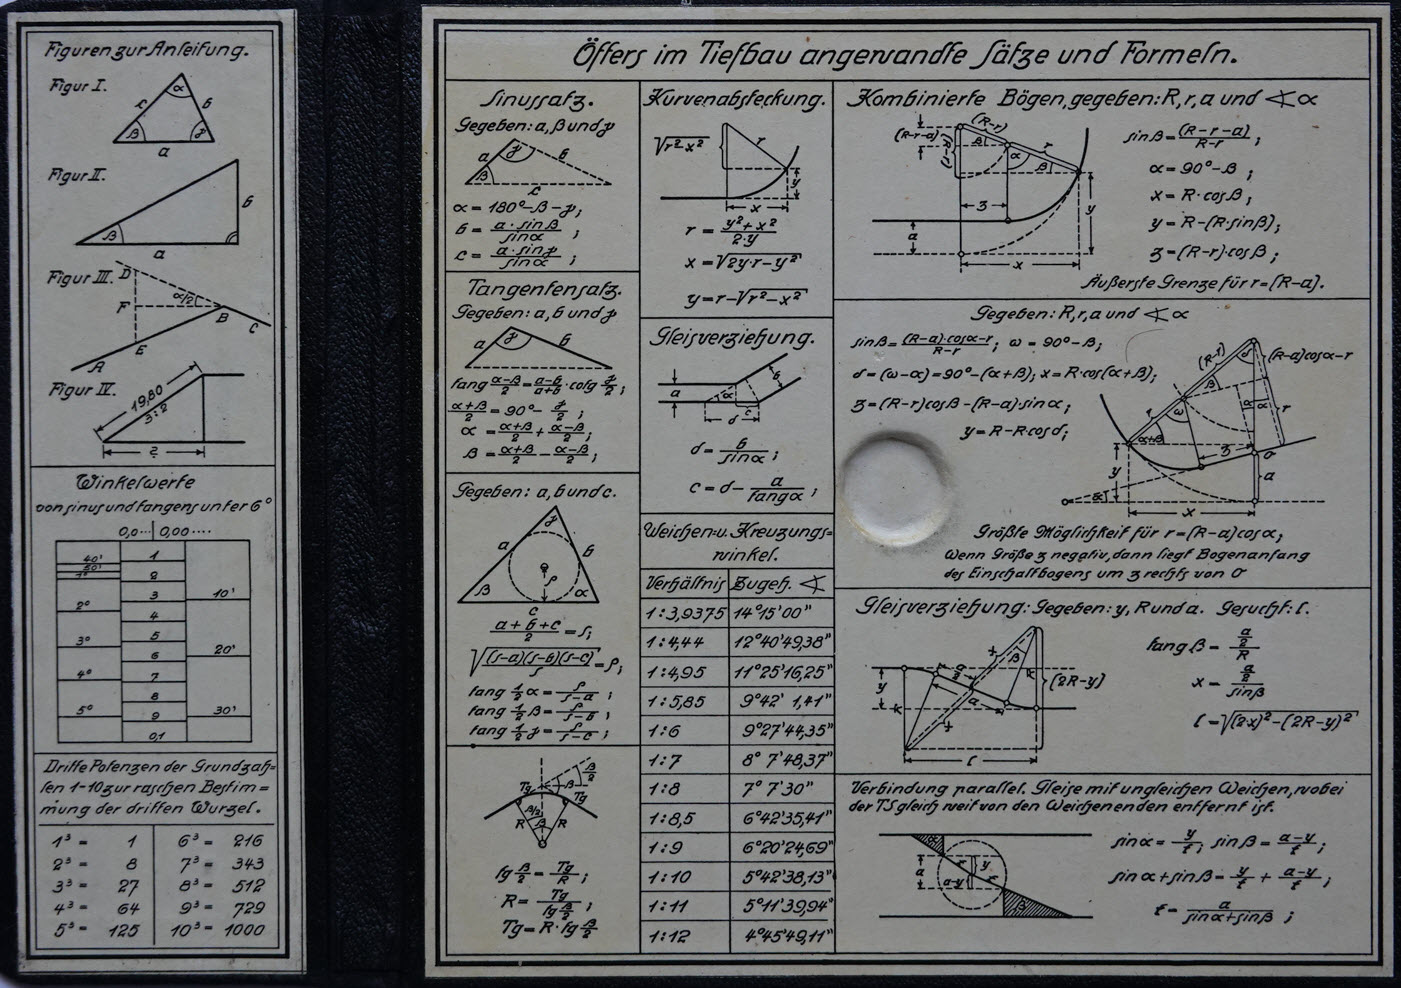 Figuren zur Anleitung.
Figur I.
r
α
b
β
γ
a
Figur II.
b
β
a
Figur III. D
α/2
F
B
C
E
A
Figur IV.
19,80
3:2
?
Winkelwerte
von sinus und tangens unter 6°
0,0... 0,00....
40' 1
50'
1° 2
3 10'
2°
4
3° 5
6 20'
4° 7
8
5° 9 30'
0,1
Dritte Potenzen der Grundzah=
len 1-10 zur raschen Bestim=
mung der dritten Wurzel.
1³ = 1 6³ = 216
2³ = 8 7³ = 343
3³ = 27 8³ = 512
4³ = 64 9³ = 729
5³ = 125 10³ = 1000
Öfters im Tiefbau angewandte Sätze und Formeln.
Sinussatz.
Gegeben: a, β und γ
a γ b
β
c
α = 180° - β - γ;
b = a · sin β / sin α ;
c = a · sin γ / sin α ;
Tangentensatz.
Gegeben: a, b und γ
a γ b
tang α-β/2 = a-b/a+b · cotg γ/2 ;
α+β/2 = 90° - γ/2 ;
α = α+β/2 + α-β/2 ;
β = α+β/2 - α-β/2 ;
Gegeben: a, b und c.
γ
a b
ρ
β α
c
a + b + c / 2 = s;
√(s-a)(s-b)(s-c) / s = ρ;
tang ½ α = ρ / s-a ;
tang ½ β = ρ / s-b ;
tang ½ γ = ρ / s-c ;
β/2
β
Tg Tg
β/2
R β R
tg β/2 = Tg / R ;
R = Tg / tg β/2 ;
Tg = R · tg β/2
Kurvenabsteckung.
√r²-x² r
y
x
r = y² + x² / 2·y
x = √2y·r-y²
y = r - √r²-x²
Gleisverziehung.
b
a α
c
d
d = b / sin α ;
c = d - a / tang α ;
Weichen= u. Kreuzungs=
winkel.
Verhältnis Zugeh. ∢
1:3,9375 14°15'00"
1:4,44 12°40'49,38"
1:4,95 11°25'16,25"
1:5,85 9°42' 1,41"
1:6 9°27'44,35"
1:7 8° 7'48,37"
1:8 7° 7'30"
1:8,5 6°42'35,41"
1:9 6°20'24,69"
1:10 5°42'38,13"
1:11 5°11'39,94"
1:12 4°45'49,11"
Kombinierte Bögen, gegeben: R, r, a und ∢ α
(R-r)
(R-r-a)
(R-r)
β α r
β
3
y
a
x
sin β = (R-r-a) / (R-r) ;
α = 90° - β ;
x = R · cos β ;
y = R - (R · sin β);
3 = (R-r) · cos β ;
Äußerste Grenze für r = (R-a).
Gegeben: R, r, a und ∢ α
sin β = (R-a) · cos α - r / R-r ; ω = 90° - β;
δ = (ω-α) = 90° - (α+β); x = R · cos (α+β);
3 = (R-r) cos β - (R-a) · sin α ;
y = R - R cos δ;
(R-r)
δ
(R-a) cos α - r
β
r
ω
R
α
r
α+β
3
O
y
a
α
x
Größte Möglichkeit für r = (R-a) cos α;
Wenn Größe 3 negativ, dann liegt Bogenanfang
des Einschaltbogens um 3 rechts von O
Gleisverziehung: Gegeben: y, R und a. Gesucht: l.
x
β
a/2
R
(2R-y)
y
R
a
x
l
tang β = a/2 / R
x = a/2 / sin β
l = √(2x)² - (2R-y)²
Verbindung parallel. Gleise mit ungleichen Weichen, wobei
der TS gleich weit von den Weichenenden entfernt ist.
α
a y
a-y r
β
sin α = y/t ; sin β = a-y/t ;
sin α + sin β = y/t + a-y/t ;
t = a / sin α + sin β ;